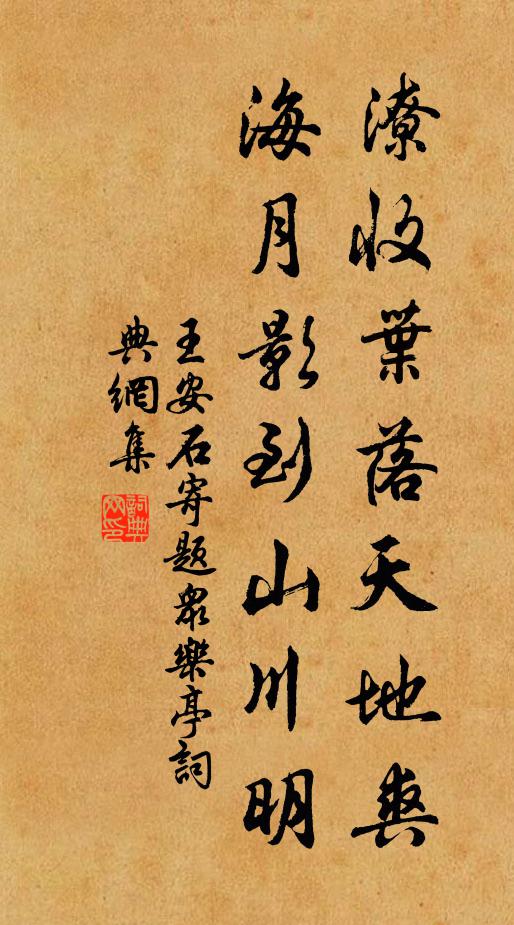 潦收葉落天地爽
海月影到山川明
王安石寄題眾樂亭詞
典網集
詞典網印